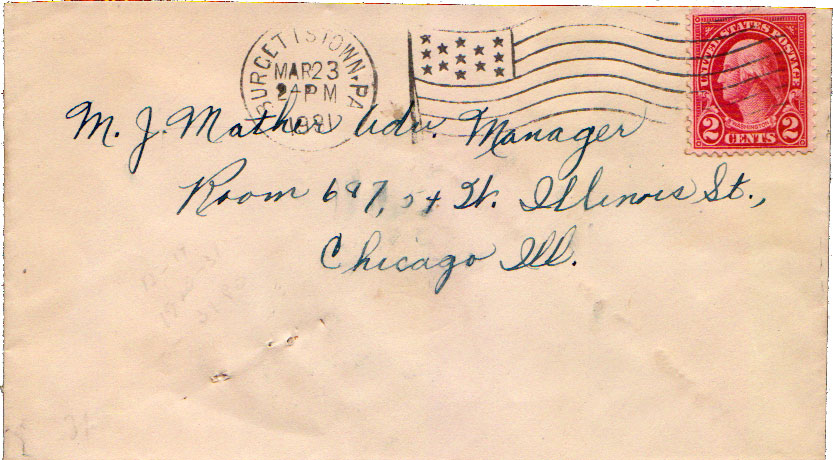 BURGETTSTOWN, PA
MAR 23
2 PM
1931
UNITED STATES POSTAGE
WASHINGTON
2 CENTS 2
M. J. Mather Adv. Manager
Room 697, 54 W. Illinois St.,
Chicago Ill.